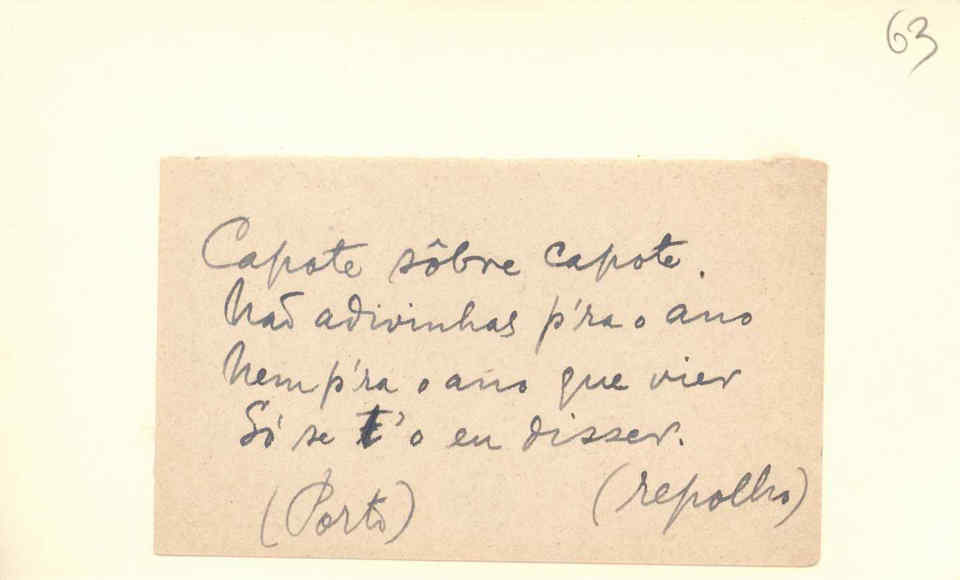 63
Capote sôbre capote.
Não adivinhas p'ra o ano
Nem p'ra o ano que vier
Só se t'o eu disser.
(Porto) (repolho)